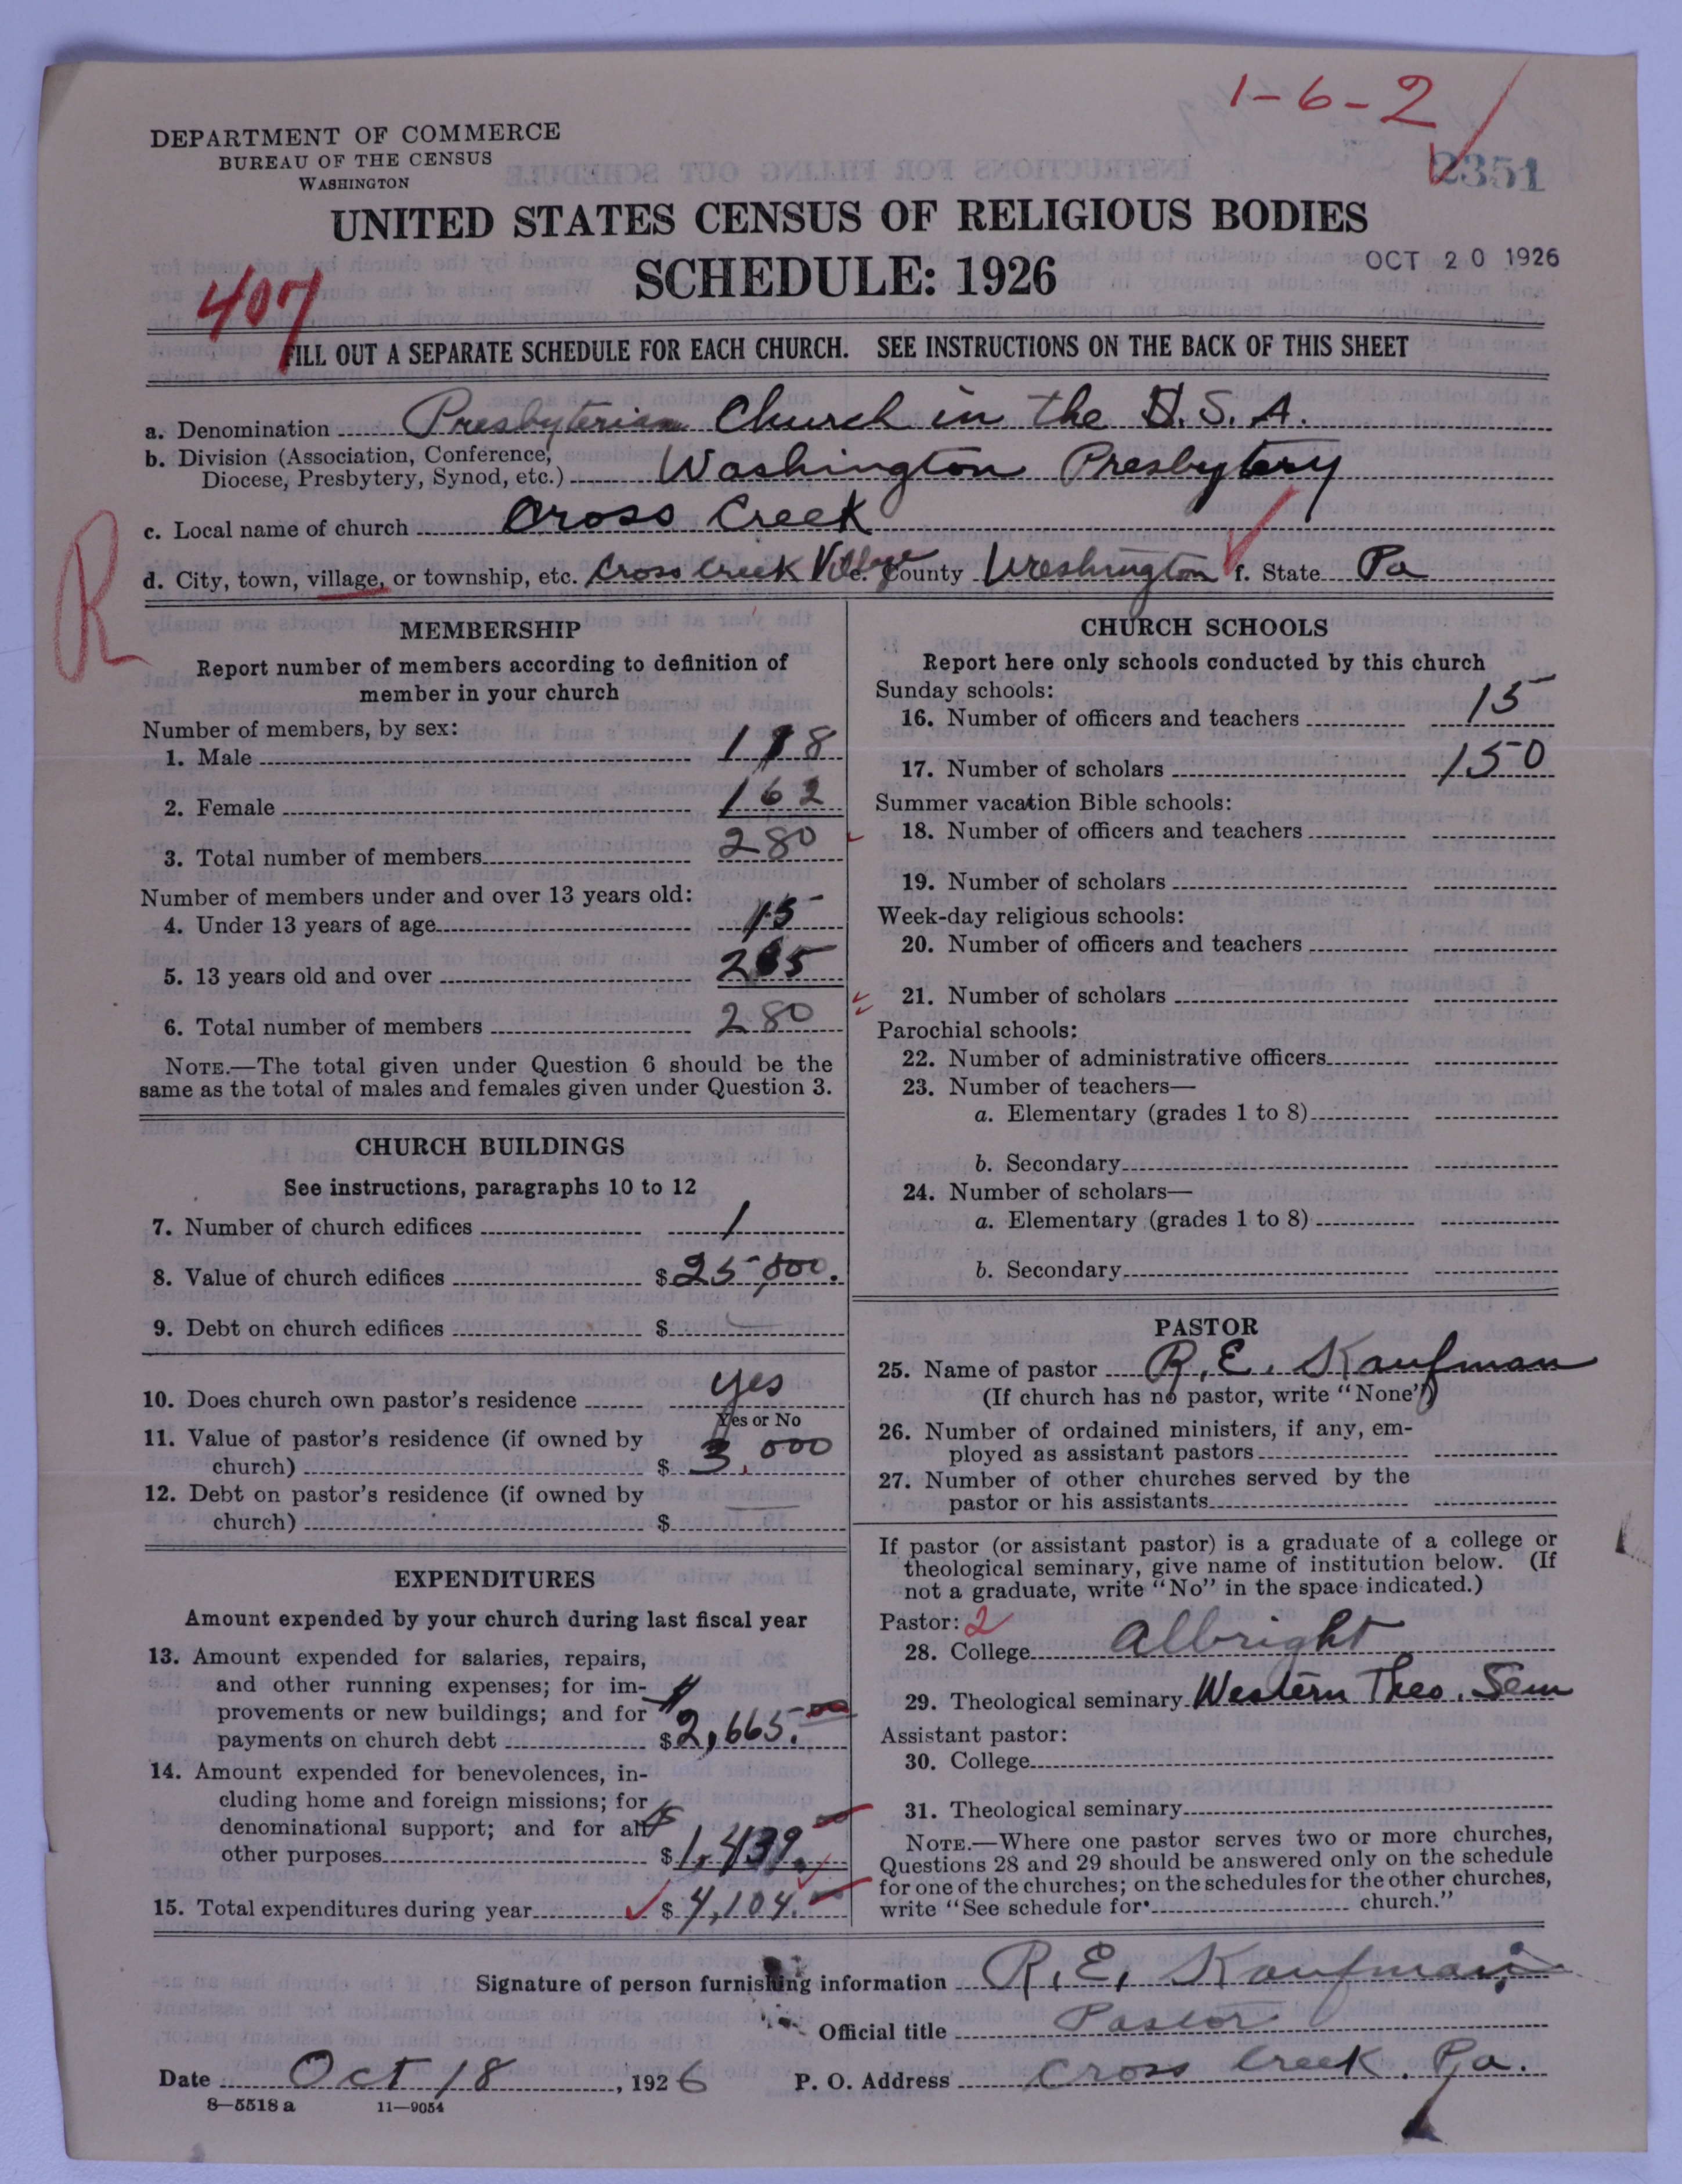 1-6-2
DEPARTMENT OF COMMERCE
BUREAU OF THE CENSUS
WASHINGTON
2351
UNITED STATES CENSUS OF RELIGIOUS BODIES
SCHEDULE: 1926
OCT 20 1926
407
FILL OUT A SEPARATE SCHEDULE FOR EACH CHURCH. SEE INSTRUCTIONS ON THE BACK OF THIS SHEET
a. Denomination Presbyterian Church in the U.S.A.
b. Division (Association, Conference, Diocese, Presbytery, Synod, etc.) Washington Presbytery
c. Local name of church Cross Creek
R
d. City, town, village, or township, etc. Cross Creek Village e. County Washington f. State Pa
MEMBERSHIP
Report number of members according to definition of
member in your church
Number of members, by sex:
1. Male 118
2. Female 162
3. Total number of members 280
Number of members under and over 13 years old:
4. Under 13 years of age 15
5. 13 years old and over 265
6. Total number of members 280
NOTE.—The total given under Question 6 should be the
same as the total of males and females given under Question 3.
CHURCH BUILDINGS
See instructions, paragraphs 10 to 12
7. Number of church edifices 1
8. Value of church edifices $25,000.
9. Debt on church edifices $
10. Does church own pastor's residence yes
Yes or No
11. Value of pastor's residence (if owned by
church) $ 3,000
12. Debt on pastor's residence (if owned by
church) $
EXPENDITURES
Amount expended by your church during last fiscal year
13. Amount expended for salaries, repairs,
and other running expenses; for im-
provements or new buildings; and for
payments on church debt $2,665.00
14. Amount expended for benevolences, in-
cluding home and foreign missions; for
denominational support; and for all
other purposes $1,439.
15. Total expenditures during year $4,104.
CHURCH SCHOOLS
Report here only schools conducted by this church
Sunday schools:
16. Number of officers and teachers 15
17. Number of scholars 150
Summer vacation Bible schools:
18. Number of officers and teachers
19. Number of scholars
Week-day religious schools:
20. Number of officers and teachers
21. Number of scholars
Parochial schools:
22. Number of administrative officers
23. Number of teachers—
a. Elementary (grades 1 to 8)
b. Secondary
24. Number of scholars—
a. Elementary (grades 1 to 8)
b. Secondary
PASTOR
25. Name of pastor R. E. Kaufman
(If church has no pastor, write "None")
26. Number of ordained ministers, if any, em-
ployed as assistant pastors
27. Number of other churches served by the
pastor or his assistants
If pastor (or assistant pastor) is a graduate of a college or
theological seminary, give name of institution below. (If
not a graduate, write "No" in the space indicated.)
Pastor: 2
28. College Albright
29. Theological seminary Western Theo. Sem
Assistant pastor:
30. College
31. Theological seminary
NOTE.—Where one pastor serves two or more churches,
Questions 28 and 29 should be answered only on the schedule
for one of the churches; on the schedules for the other churches,
write "See schedule for church."
Signature of person furnishing information R. E. Kaufman
Official title Pastor
Date Oct 18, 1926 P. O. Address Cross Creek. Pa.
8—5518 a 11—9054